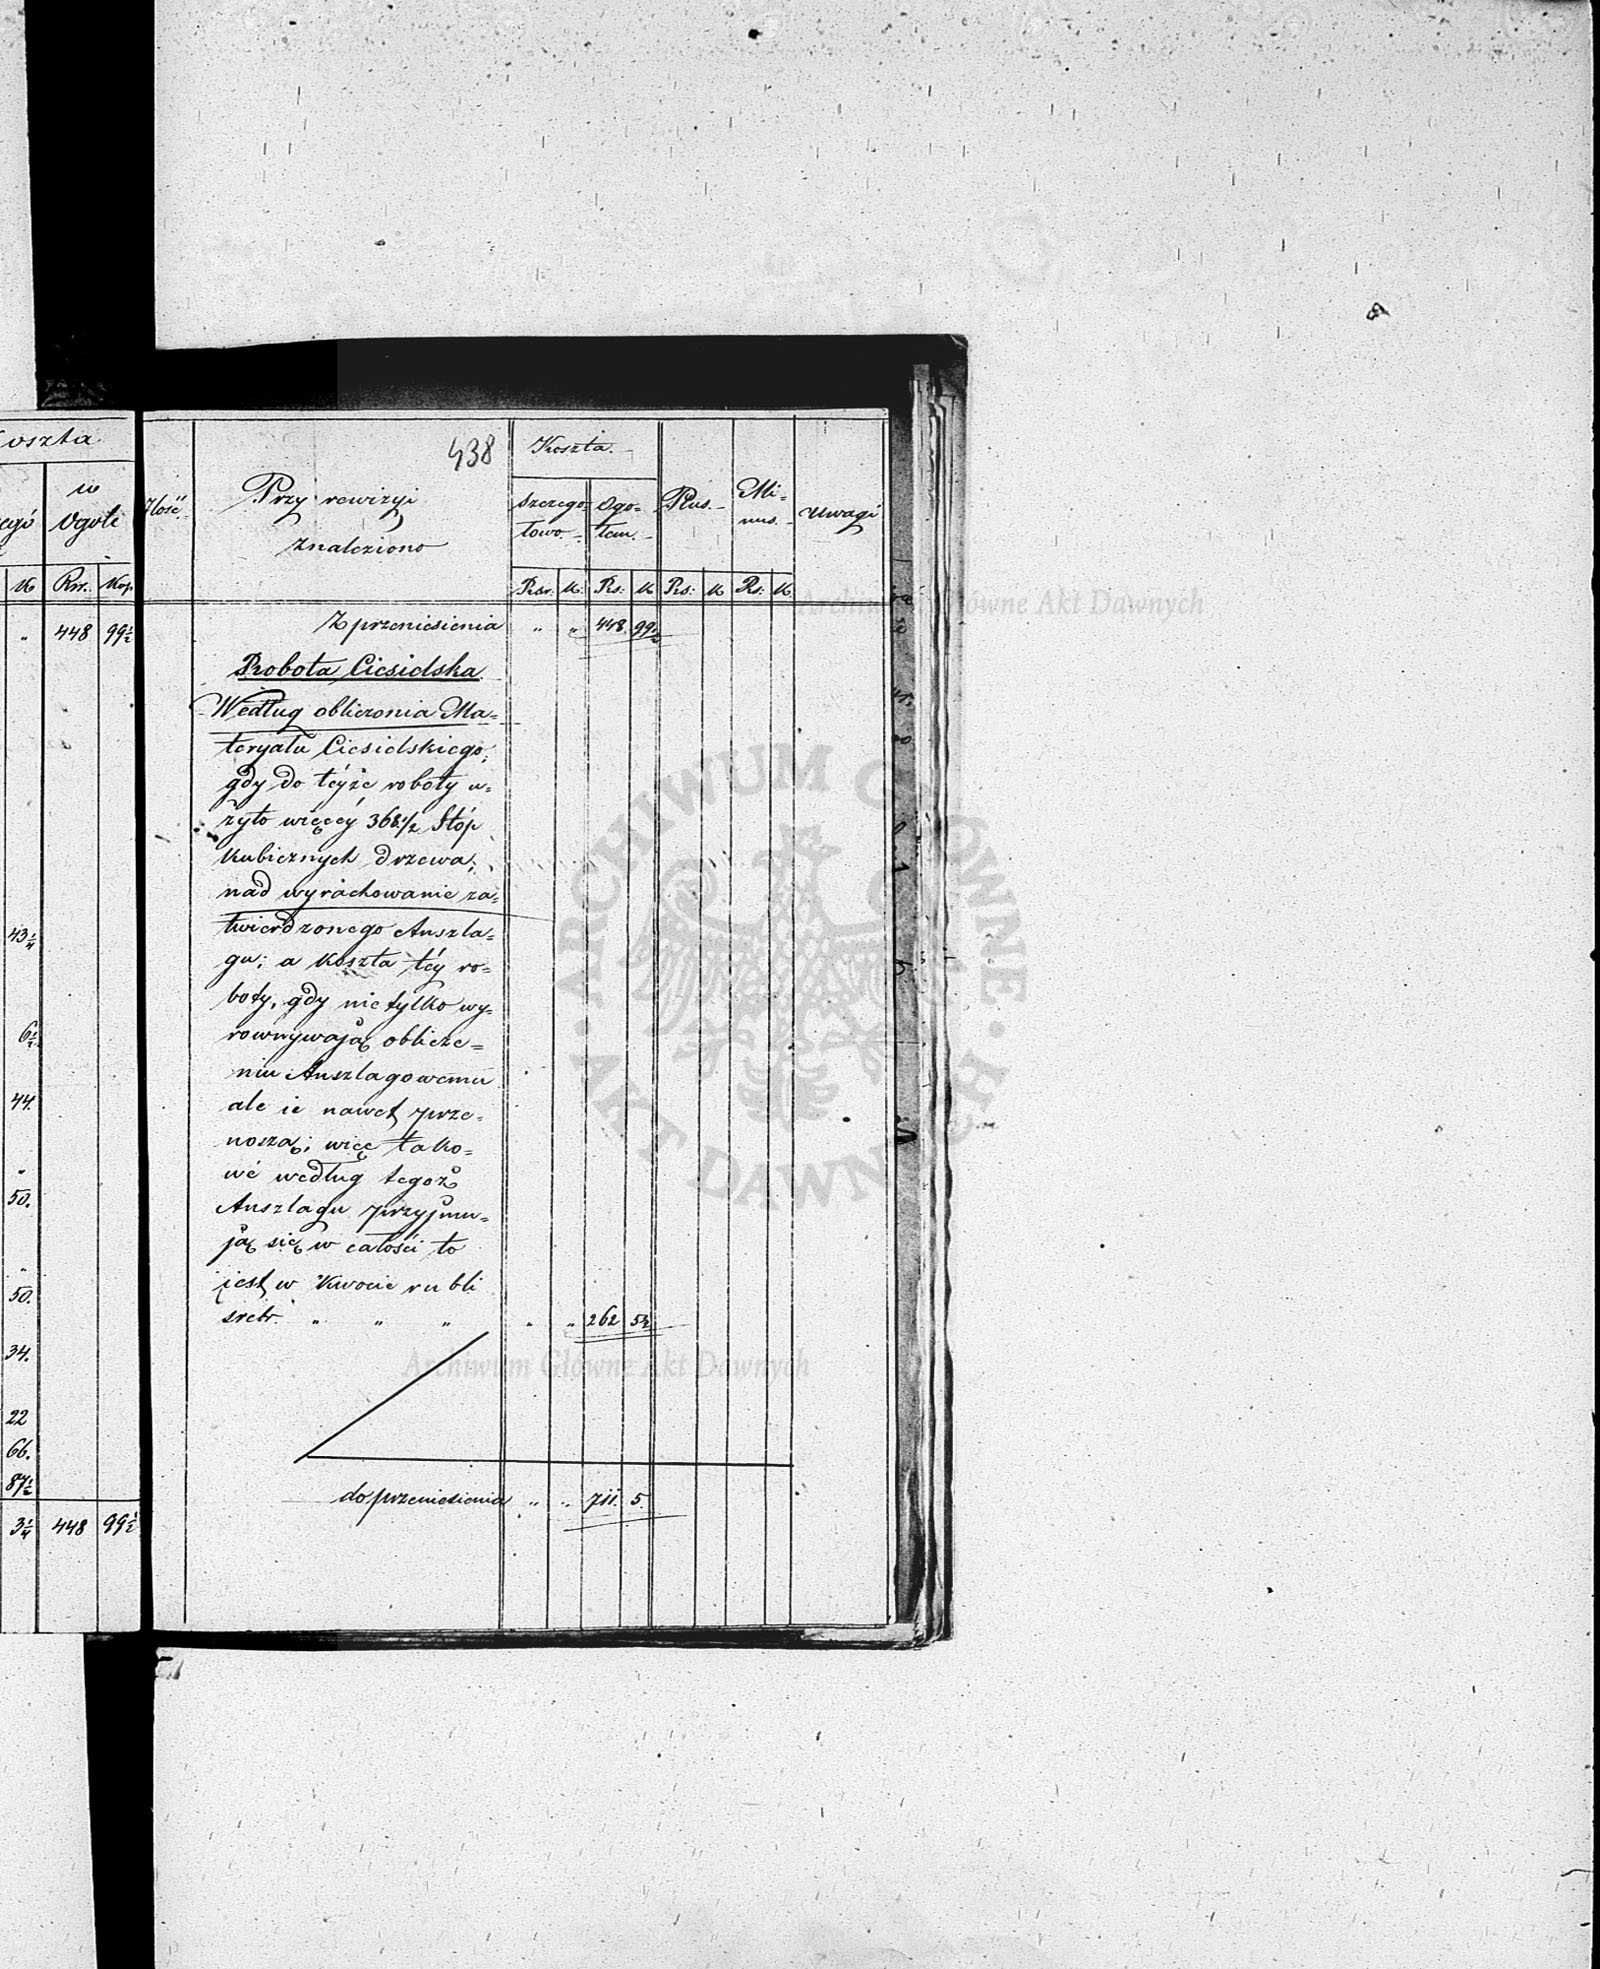 oszta
w
Ogole
K
Rsr.
Kop.
"
448
99½
43¼
6½
44.
"
50.
"
50.
34.
22
66.
87½
3¼
448
99½
438
Ilość
Przy rewizyi
znaleziono
Koszta.
Szczego-
łowo.
Ogo=
łem.
Plus.
Mi=
nus.
Uwagi
Rsr.
K:
Rs:
K
Rs:
K
Rs:
K
Z przeniesienia " " 448. 99½
Robota Ciesielska
Według obliczenia Ma=
teryału Ciesielskiego;
gdy do téyże roboty u=
żyto więcéy 368½ Stóp
Kubicznych drzewa;
nad wyrachowanie za=
twierdzonego Anszla=
gu; a Koszta téy ro=
boty, gdy nietylko wy=
rownywają oblicze=
niu Anszlagowemu
ale ie nawet prze=
noszą; więc tako=
wé według tegoż
Anszlagu przyjmu=
ją się w całości to
jest w Kwocie rubli
srebr. " " " " " 262 5½
do przeniesienia " " 711. 5.
Archiwum Główne Akt Dawnych
ARCHIWUM GŁÓWNE · AKT DAWNYCH ·
Archiwum Główne Akt Dawnych